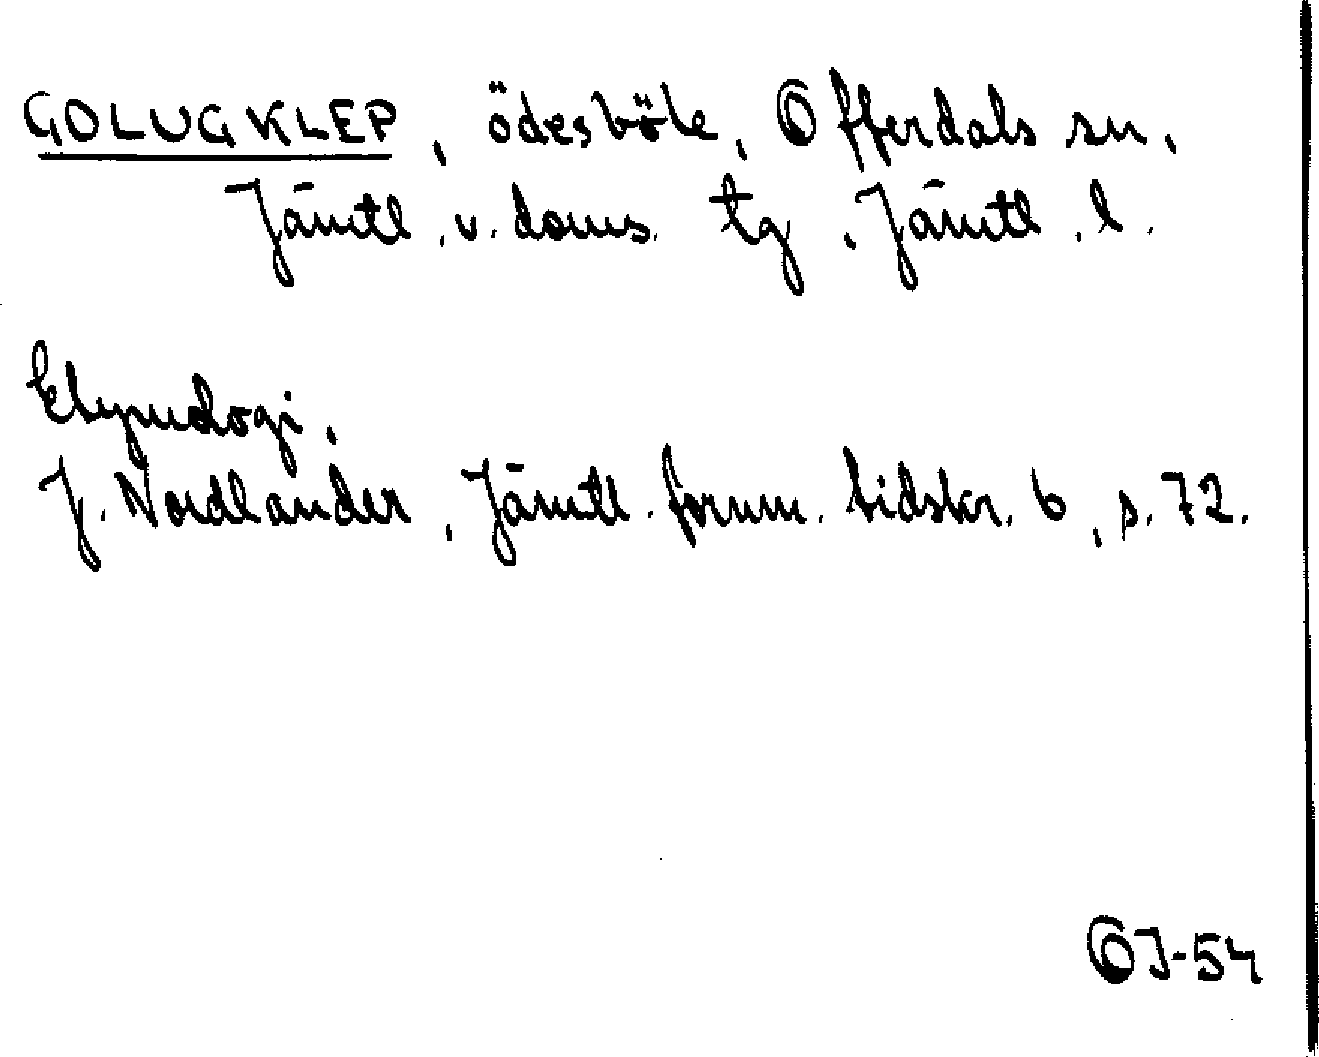 GOLUGKLEP, ödesböle, Offerdals sn,
Jämtl. v. doms. tg, Jämtl. l.
Etymologi,
J. Nordlander, Jämtl. fornm. tidskr. 6, s. 72.
OJ-54